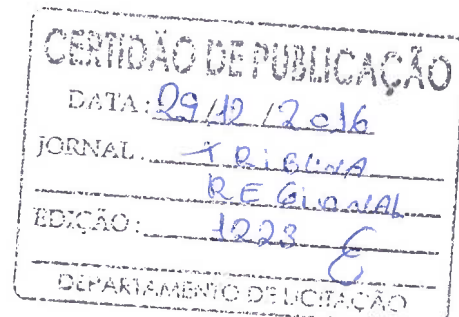 CERTIDÃO DE PUBLICAÇÃO
DATA: 29/12/2016
JORNAL: TRIBUNA
REGIONAL
EDIÇÃO: 1223
DEPARTAMENTO DE LICITAÇÃO